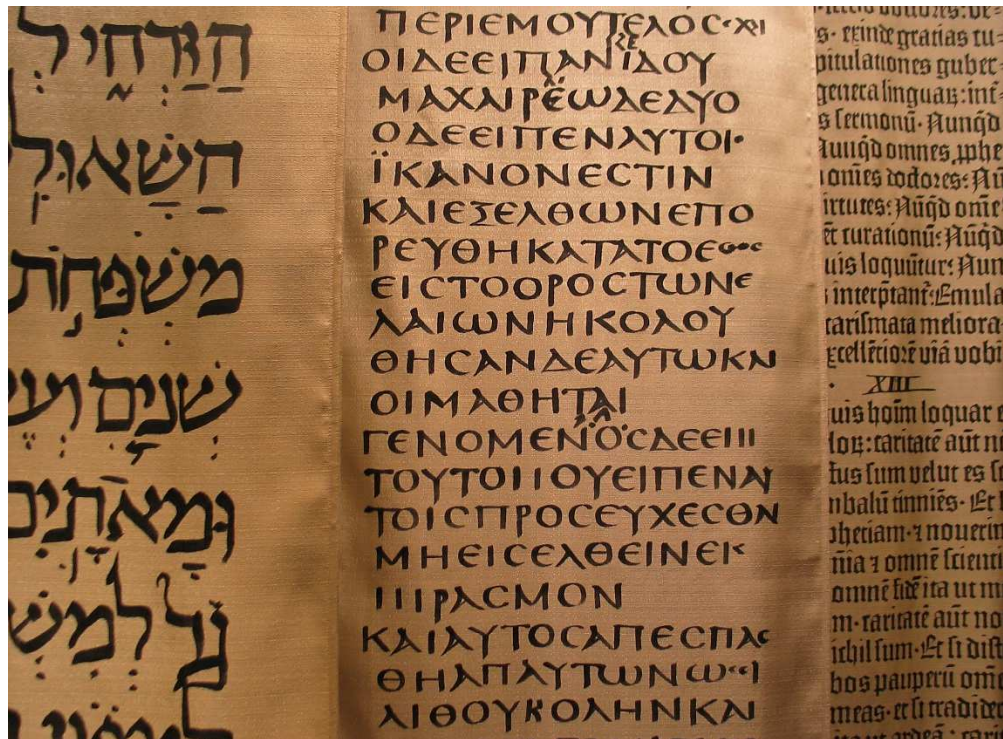 הַזַּרְחִ֑י לְ
הַשָּׁאוּלִ
מִשְׁפְּחֹת
שְׁנַ֥יִם וְעֶ
וּמָאתָ֑יִם
גָד לְמִשְׁ
ΠΕΡΙΕΜΟΥΤΕΛΟC·ΧΡΙ
ΟΙΔΕΕΙΠΑΝΙΔΟΥ
ΜΑΧΑΙΡΕΩΔΕΔΥΟ
ΟΔΕΕΙΠΕΝΑΥΤΟΙ·
ΪΚΑΝΟΝΕCΤΙΝ
ΚΑΙΕΞΕΛΘΩΝΕΠΟ
ΡΕΥΘΗΚΑΤΑΤΟΕΘΟC
ΕΙCΤΟΟΡΟCΤΩΝΕ
ΛΑΙΩΝΗΚΟΛΟΥ
ΘΗCΑΝΔΕΑΥΤΩΚΑΙ
ΟΙΜΑΘΗΤΑΙ
ΓΕΝΟΜΕΝΟCΔΕΕΠΙ
ΤΟΥΤΟΠΟΥΕΙΠΕΝΑΥ
ΤΟΙCΠΡΟCΕΥΧΕCΘΑΙ
ΜΗΕΙCΕΛΘΕΙΝΕΙC
ΠΙΡΑCΜΟΝ
ΚΑΙΑΥΤΟCΑΠΕCΠΑC
ΘΗΑΠΑΥΤΩΝΩCΙ
ΛΙΘΟΥΒΟΛΗΝΚΑΙ
s· exinde gratias cu-
pitulationes guber-
genera linguaꝝ: int̄-
s sermonū· Nunqͥd
Nunqͥd omnes ꝓphe
omēs doctores: Nū
irtutes: Nūqͥd om̄e
ēt curationū: Nūqͥd
uis loquūtur: Nun
interp̄tant̉: Emula
carismata meliora·
xcellētiorē viā vobi
XIII
uis hoīm loquar
loꝝ: caritatē aūt n
fus sum velut es s
mbalū tinniēs· Et
phetiam· ⁊ noverim
nia ⁊ omnē scienti
omnē fidē ita ut m
m· caritatē aūt no
ichil sum· Et si dist
bos pauperū omē
meas· et si tradider